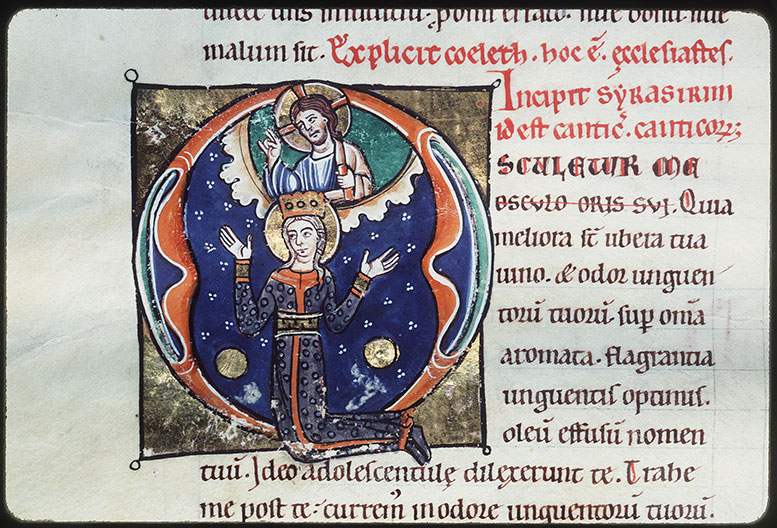 malum sit. Explicit coeleth. hoc ē. ęcclesiastes.
Incipit syrasirim
id est cantic̄. canticorꝝ
SCULETUR ME
OSCULO ORIS SUI. Quia
meliora st̄ ubera tua
uino. & odor unguen
torū tuorū. sup̄ om̄ia
aromata. flagrantia
unguentis optimis.
oleū effusū nomen
tuū. Ideo adolescentulę dilexerunt te. Trahe
me post te. currem̄ in odore unguentorū tuorū.